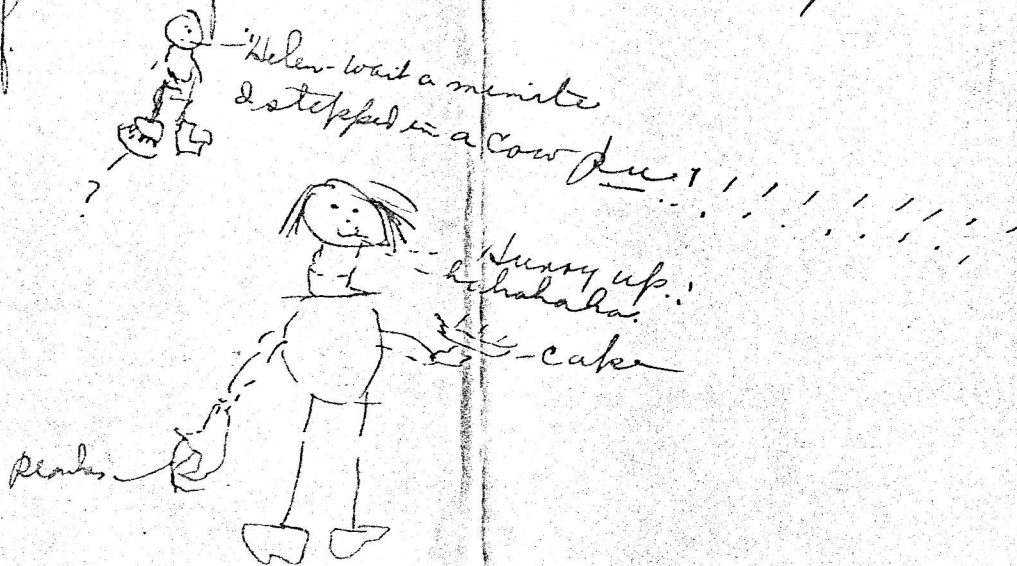 "Helen - wait a minite
I stepped in a cow pu!!!!!!!!!
?
Hurry up!
hahahaha.
- cake